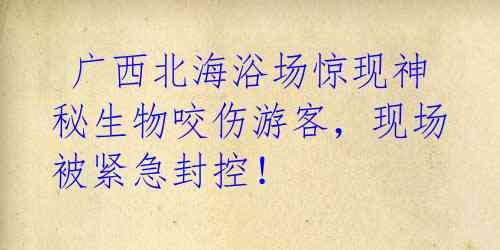 广西北海浴场惊现神
秘生物咬伤游客，现场
被紧急封控！